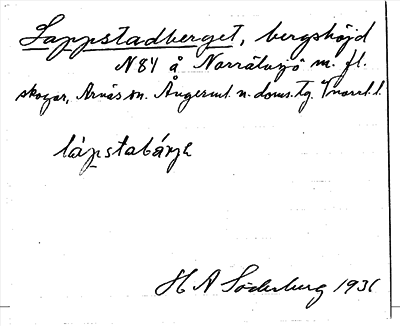 Lappstadberget, bergshöjd
N 84 å Norrälugö m. fl.
skogar, Arnäs sn. Ångerml. n. doms. Tg.
lápstabárje
H A Söderberg 1931